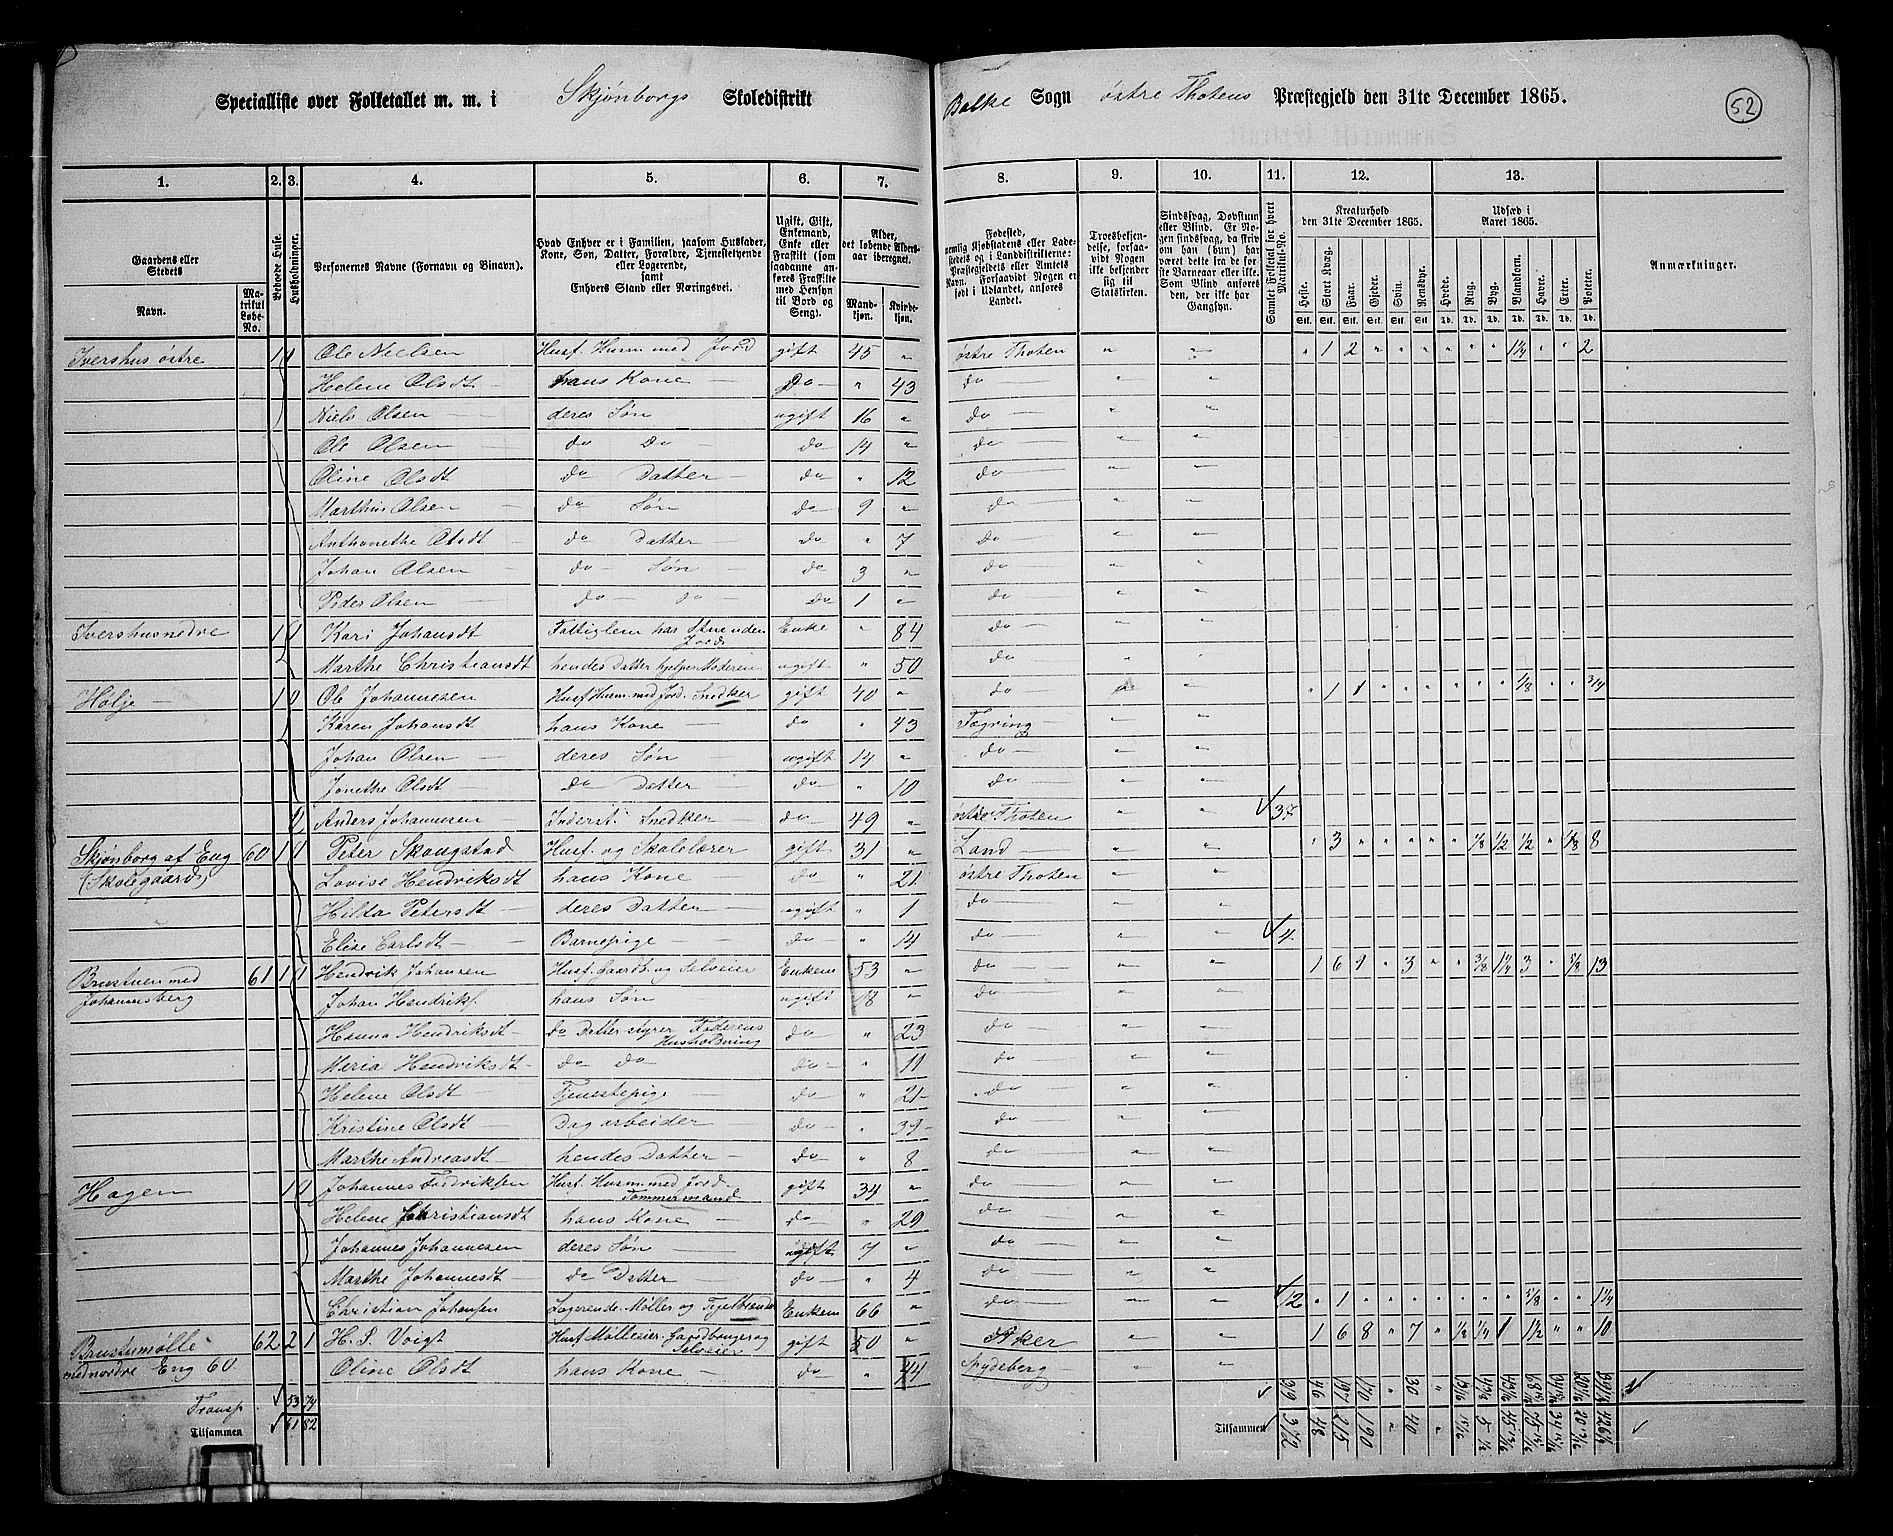 Specialliste over Folketallet m. m. i Skjønborgs Skoledistrikt Balke Sogn østre Thotens Præstegjeld den 31te December 1865. 52
1. 2. 3. 4. 5. 6. 7. 8. 9. 10. 11. 12. 13.
Gaardens eller Stedets
Navn.
Matrikul Løbe-No.
Beboede Huse.
Husholdninger.
Personernes Navne (Fornavn og Binavn).
Hvad Enhver er i Familien, saasom Husfader, Kone, Søn, Datter, Forældre, Tjenestetyende eller Logerende,
samt
Enhvers Stand eller Næringsvei.
Ugift, Gift, Enkemand, Enke eller Fraskilt (som saadanne anføres Fraskilte med Hensyn til Bord og Seng).
Alder, det løbende Aldersaar iberegnet.
Mandkjøn.
Kvindekjøn.
Fødested, nemlig Kjøbstadens eller Ladestedets og i Landdistrikterne: Præstegjeldets eller Amtets Navn. Forsaavidt Nogen er født i Udlandet, anføres Landet.
Troesbekjendelse, forsaavidt Nogen ikke bekjender sig til Statskirken.
Sindssvag, Døvstum eller Blind. Er Nogen sindssvag, da skriv om han (hun) har været dette fra de første Barneaar eller ikke. Som Blind anføres den, der ikke har Gangsyn.
Samlet Folketal for hvert Matrikul-No.
Kreaturhold den 31te December 1865.
Heste. Stort Kvæg. Faar. Gjeder. Svin. Rensdyr.
Udsæd i Aaret 1865.
Hvede. Rug. Byg. Blandkorn. Havre. Erter. Poteter.
Anmærkninger.
Ivershus østre 1 1 Ole Nielsen Husf. Husm med Jord gift 45 " østre Thoten " " " 1 2 " " " " " " 1 1/4 " " 2
Helene Olsdt hans Kone Do " 43 do " "
Niels Olsen deres Søn ugift 16 " do " "
Ole Olsen do Do do 14 " do " "
Oline Olsdt do Datter do " 12 do " "
Marthus Olsen do Søn do 9 " do " "
Anthonethe Olsdt do Datter do " 7 do " "
Johan Olsen do Søn do 3 " do " "
Peder Olsen do do do 1 " do " "
Ivershus nedre 1 1 Kari Johansdt Fattiglem har Stue uden Jord Enke " 84 do " "
Marthe Christiansdt hendes Datter hjelper Moderen ugift " 50 do " "
Holje 1 1 Ole Johannesen Husf Husm med Jord. Snedker gift 40 " do " " " 1 1 " " " " " " 4/8 " " 3/4
Karen Johansdt hans Kone do " 43 Fegring " "
Johan Olsen deres Søn ugift 14 " do " "
Jonethe Olsdt do Datter do " 10 do " "
1 Anders Johannesen Inderst. Snedker do 49 " østre Thoten " " 37
Skjønborg af Eng 60 1 1 Peter Skougstad Husf. og Skolelærer gift 31 " Land " " " 3 " " " " " 1/8 1/2 1/2 " 1/8 8
(Skolegaard) Lovise Hendriksdt hans Kone do " 21 østre Thoten " "
Hilda Petersdt deres Datter ugift " 1 do " "
Elise Carlsdt Barnepige do " 14 do " " 4
Brustuen med 61 1 1 Hendrik Johansen Husf. Gaardb. og Selveier Enkem 53 " do " " 1 6 9 " 3 " " 3/8 1 1/4 3 " 5/8 13
Johannesberg Johan Hendriks. hans Søn ugift 18 " do " "
Hanna Hendriksdt do Datter styrer Faderens Husholdning do " 23 do " "
Maria Hendriksdt do do do " 11 do " "
Helene Olsdt Tjenestepige do " 21 do " "
Kristine Olsdt Dagarbeider do " 39 do " "
Marthe Andreasdt hendes Datter do " 8 do " "
Hagen 1 1 Johannes Fredriksen Husf. Husm med Jord. Tømmermand gift 34 " do " "
Helene Christiansdt hans Kone do " 29 do " "
Johannes Johannesen deres Søn ugift 7 " do " "
Marthe Johannesdt do Datter do " 4 do " "
Christian Johansen Logerende. Møller og Teglbrænder Enkem 66 " do " " 12 " 1 " " " " " " " 3/8 " " 1 1/4
Brustumølle 62 2 1 H. S. Voigt Husf Mølleeier. Gaardbruger og Selveier gift 50 " Aker " " 1 6 8 " 7 " 1/8 1/4 1 1 1/2 " " 10
mednordre Eng 60. Oline Olsdt hans Kone do " 44 Spydeberg " "
Transp 53 74
Tilsammen 61 82 Tilsammen 372 48 215 190 " 40 "